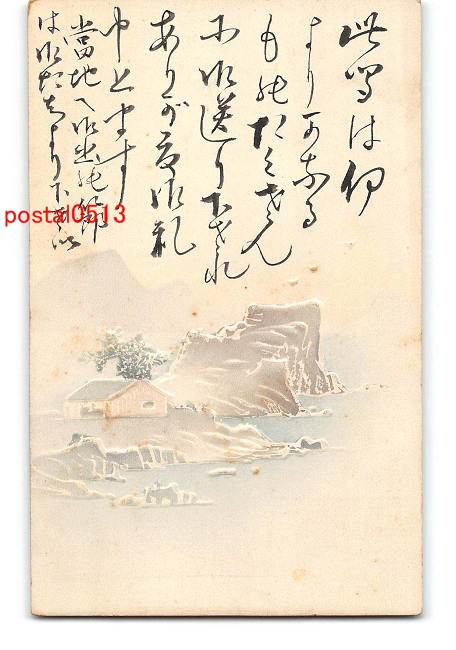 此間は何
より可なる
ものたくさん
に御送り下され
ありがたう御礼
申上ます
當地へ御出の節
は御たちより下さい
postal0513